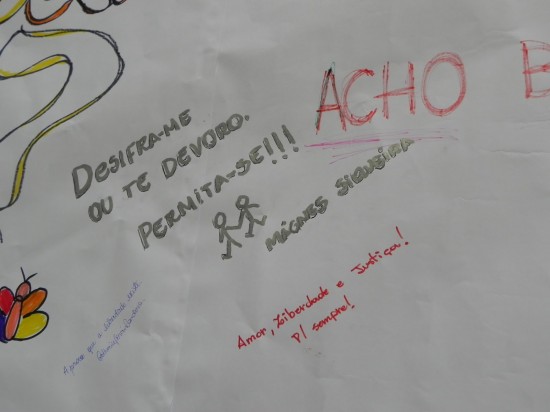 DESIFRA-ME
OU TE DEVORO.
PERMITA-SE!!!
MÁGNES SILQUEIRA
ACHO
Amor, Liberdade e Justiça!
P/ sempre!